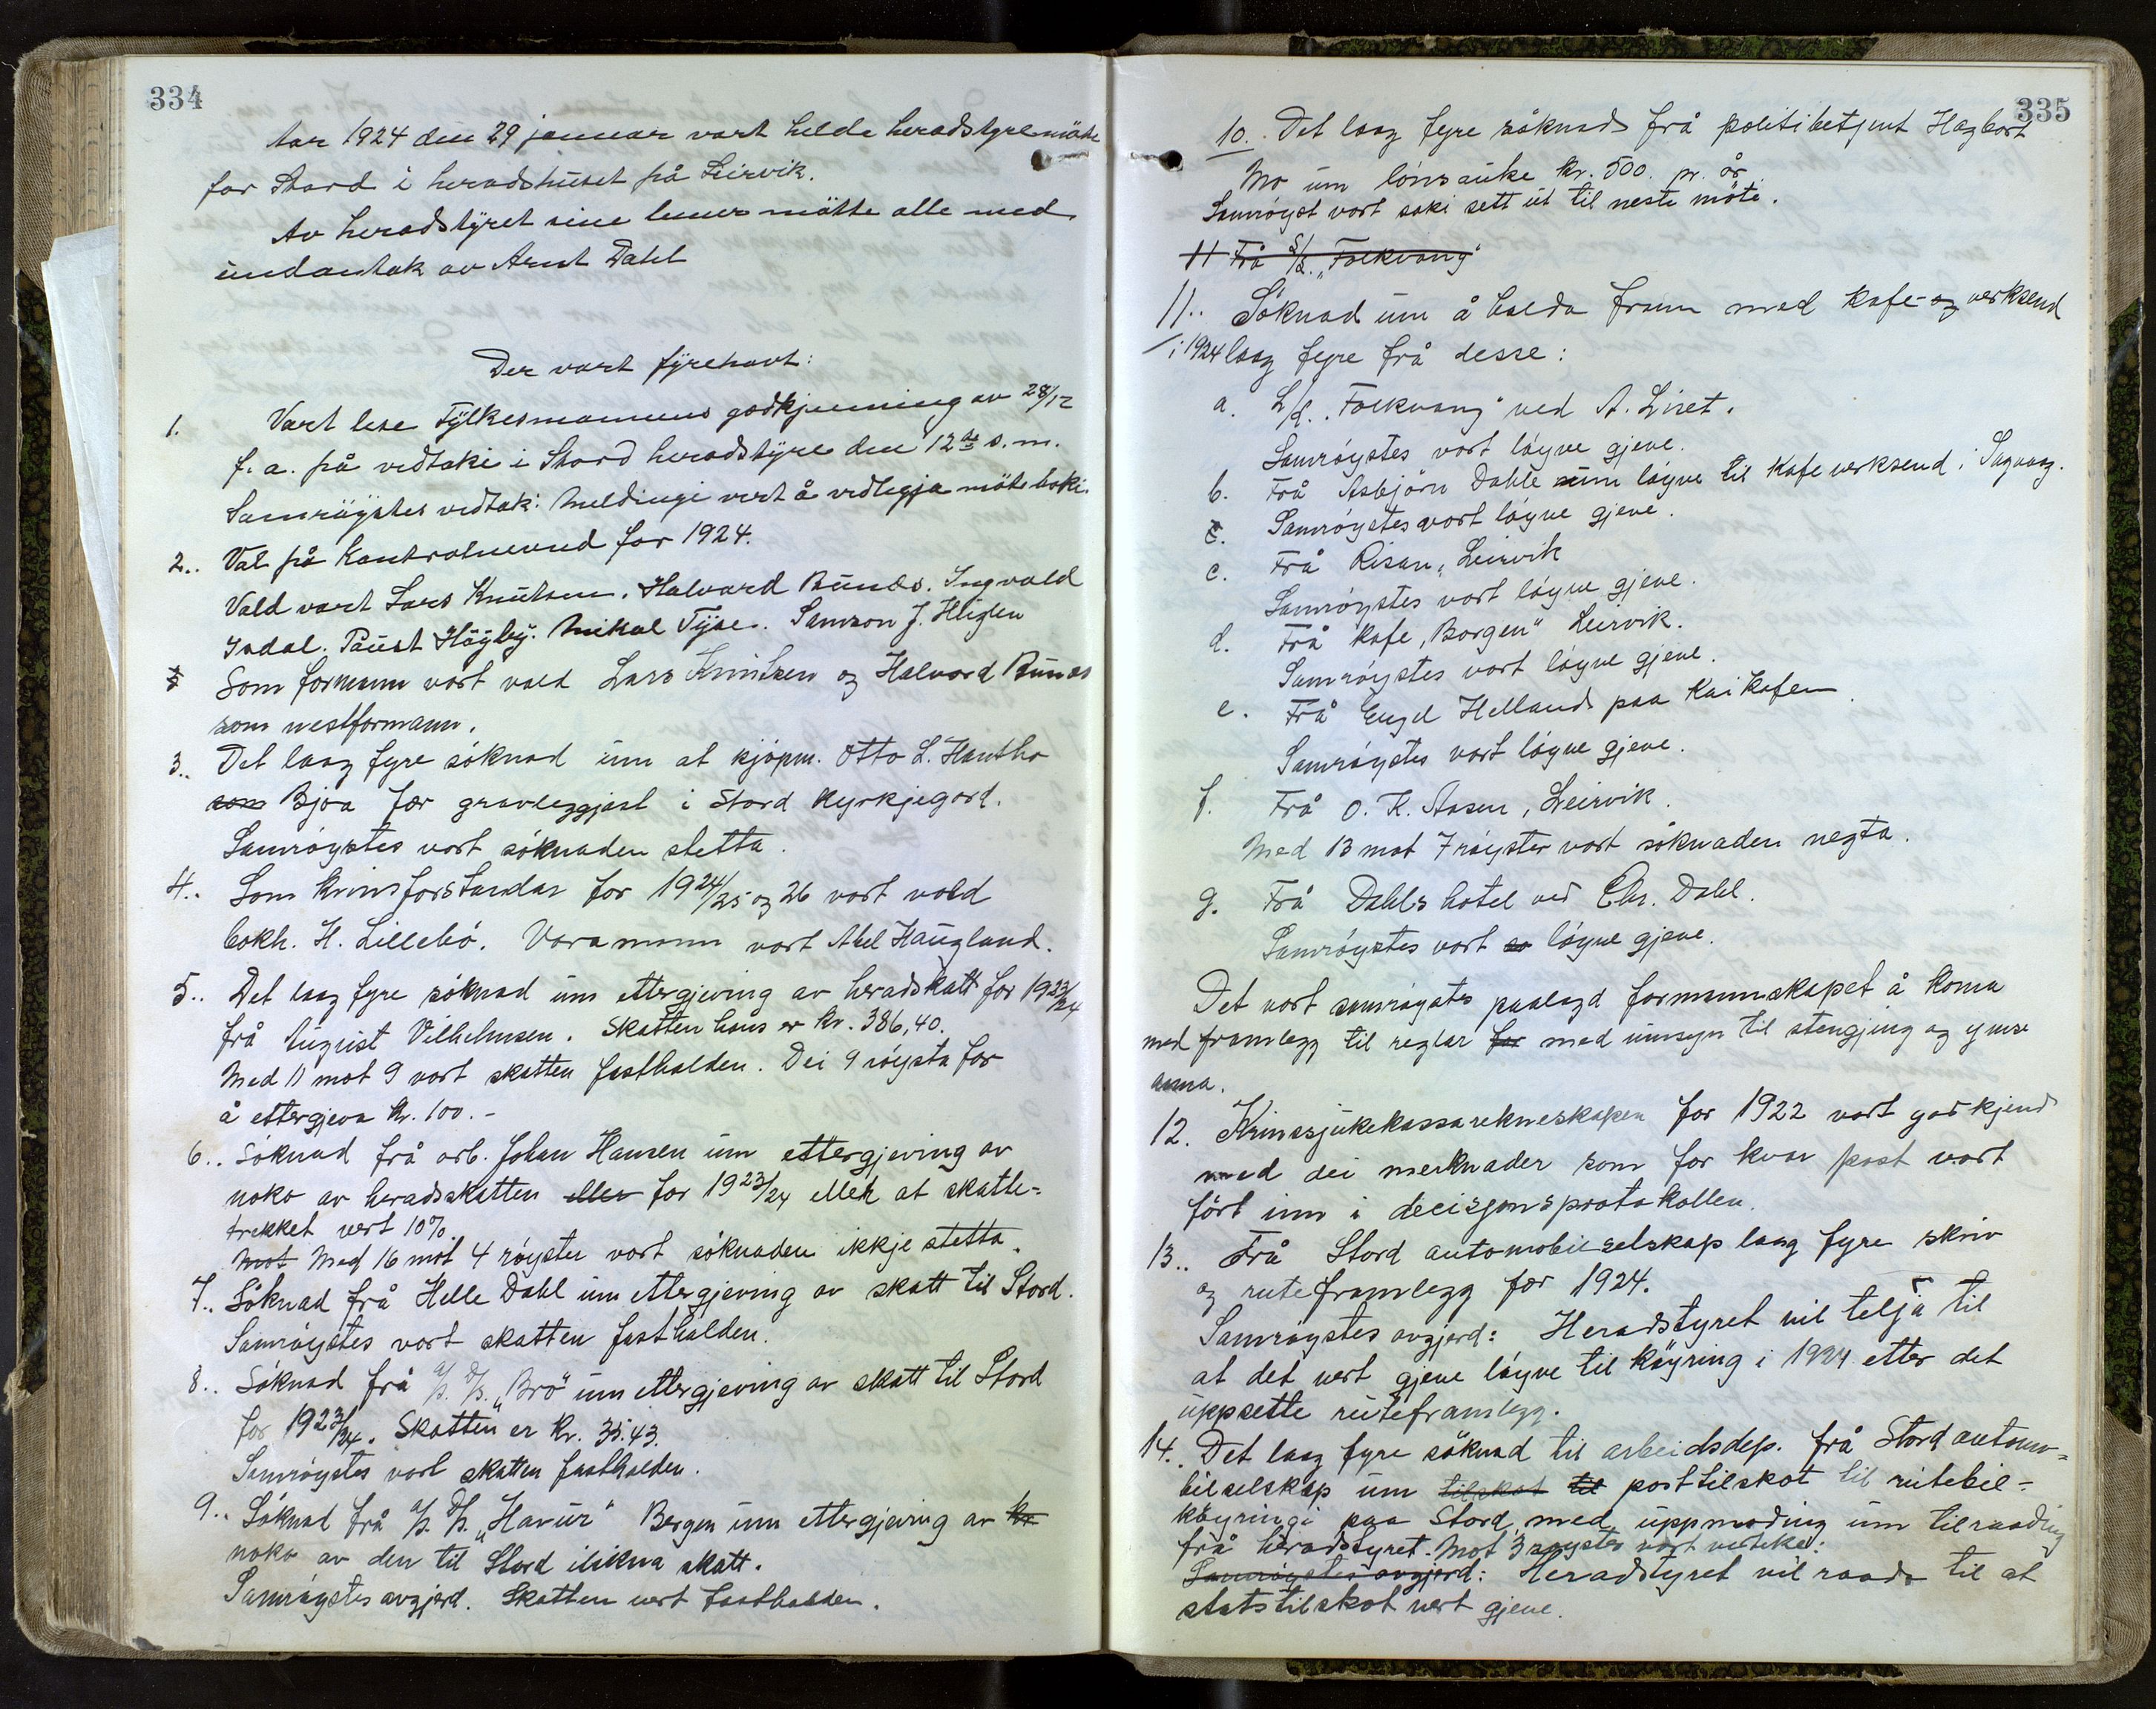 334
Aar 1924 den 29 januar vart helde heradstyremöte
for Stord i heradshuset på Leirvik.
Av heradstyret sine lemer mötte alle med
undantak av Arnt Dahl
Der vart fyrehavt:
1. Vart lese Fylkesmannens godkjenning av 28/12
f. a. på vedtaki i Stord heradstyre den 12te s. m.
Samröystes vedtak: Meldingi vert å vedlegja möteboki.
2.. Val på Kontrolnevnd for 1924.
Vald vart Lars Knutsen. Halvard Bunes. Ingvald
Indal. Paust Högby. Mikal Tyse. Samson J.
3 Som formann vart vald Lars Knutsen og Halvard Bunes
som nestformann.
3.. Det laag fyre söknad um at kjöpm. Otto L. Hantho
som Bjoa fær gravleggjast i Stord kyrkjegard.
Samröystes vart söknaden stetta.
4.. Som krinsforstandar for 1924/25 og 26 vart vald
bokh. H. Lillebö. Varamann vart Abel Haugland.
5.. Det laag fyre söknad um ettergjeving av heradskatt for 1923/24
frå August Vilhelmsen. Skatten hans er kr. 386,40.
Med 11 mot 9 vart skatten fasthalden. Dei 9 röysta for
å ettergjeva kr. 100.-
6.. Söknad frå arb. Johan Hansen um ettergjeving av
noko av heradsskatten eller for 1923/24 eller at skatte=
trekket vert 10%.
Mot Med 16 mot 4 röyster vart söknaden ikkje stetta.
7.. Söknad frå Helle Dahl um ettergjeving av skatt til Stord.
Samröystes vart skatten fasthalden.
8.. Söknad frå A/S. D/S. „Bro“ um ettergjeving av skatt til Stord
for 1923/24. Skatten er kr. 35.43.
Samröystes vart skatten fasthalden.
9.. Söknad frå A/S. D/S. „Havur“ Bergen um ettergjeving av kr
noko av den til Stord ilikna skatt.
Samröystes avgjerd. Skatten vert fasthalden.
335
10. Det laag fyre söknad frå politibetjent Hagbart
Mo um lönsauke kr. 500. pr. år
Samröyst vart saki sett ut til neste möte.
11 Frå L/L. „Folkvang“
11.. Söknad um å halda fram med kafe- og verksend
i 1924 laag fyre frå desse:
a. L/L. „Folkvang“ ved A. Liset.
Samröystes vart löyve gjeve.
b. Frå Asbjörn Dahle um löyve til Kafeverksend i Sagvaag.
c. Samröystes vart löyve gjeve.
c. Frå Risan, Leirvik
Samröystes vart löyve gjeve.
d. Frå kafe „Borgen“ Leirvik.
Samröystes vart löyve gjeve.
e. Frå Engel Helland paa Kaikafeen.
Samröystes vart löyve gjeve.
f. Frå O. K. Aasen, Leirvik.
Med 13 mot 7 röyster vart söknaden negta.
g. Frå Dahls hotel ved Chr. Dahl.
Samröystes vart so löyve gjeve.
Det vart samröystes paalagd formannskapet å koma
med framlegg til reglar for med umsyn til stengjing og ymse
anna.
12. Krinssjukekassarekneskapen for 1922 vart godkjend
med dei merknader som for kvar post vart
fört inn i decisjonsprotokollen.
13.. Frå Stord automobilselskap laag fyre skriv
og ruteframlegg for 1924.
Samröystes avgjerd: Heradstyret vil telja til
at det vert gjeve löyve til köyring i 1924 etter det
uppsette ruteframlegg.
14.. Det laag fyre söknad til arbeidsdep. frå Stord automo=
bilselskap um tilskot til posttilskot til rutebil-
köyringi paa Stord, med uppmoding um tilraading
frå heradstyret. Mot 3 röyster vart vedteke:
Samröystes avgjerd: Heradstyret vil raada til at
statstilskot vert gjeve.